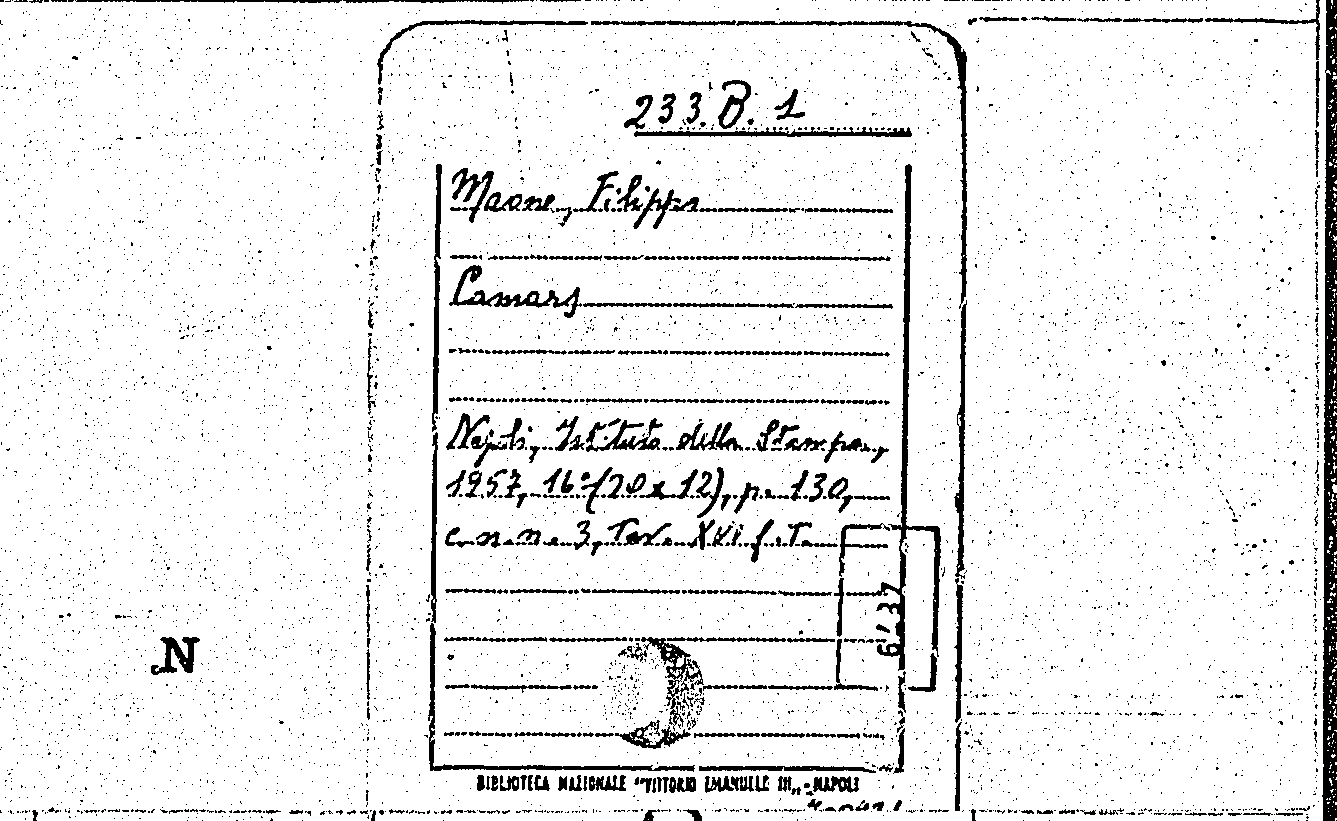 233.B.1
Maone, Filippo
Napoli, Istituto della Stampa,
1957, 16°(20x12), p. 130,
c.n.n. 3, Tav. XVI f.T.
N
BIBLIOTECA NAZIONALE "VITTORIO EMANUELE III„ - NAPOLI